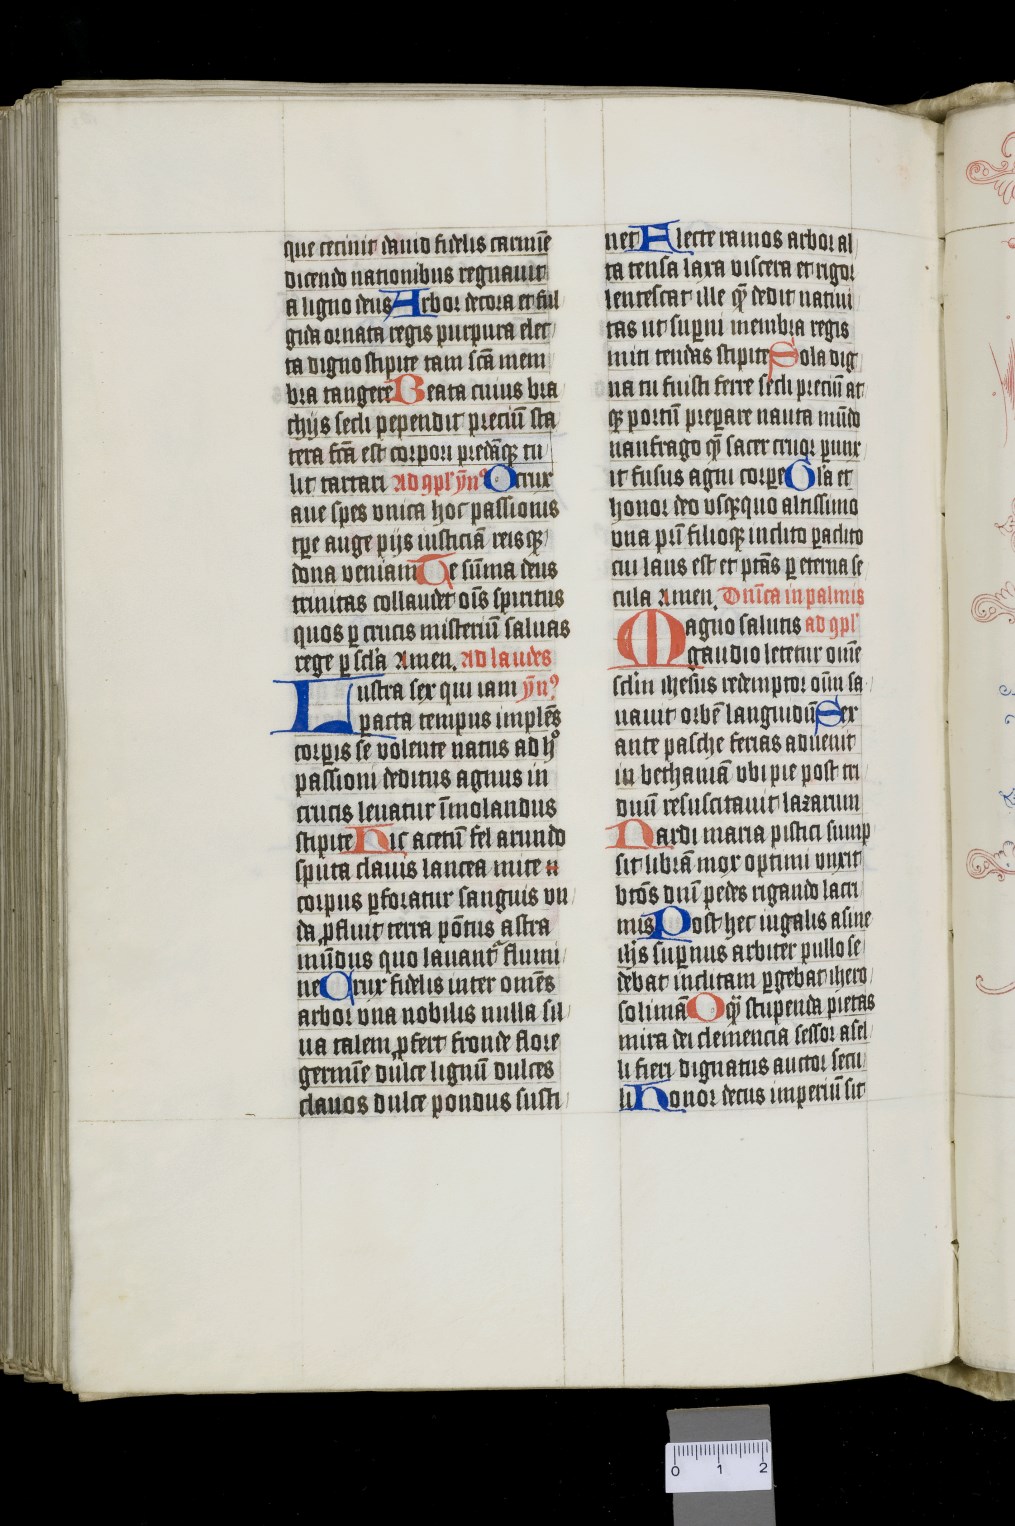 que cecinit dauid fidelis carmīe
dicendo nationibus regnauit
a ligno deus Arbor decora et ful
gida ornata regis purpura elec
ta digno stipite tam scā mem
bra tangere Beata cuius bra
chijs secli pependit preciū sta
tera fcā est corpori predāqꝫ tu
lit tartari Ad ꝯpl' ym̄ꝰ O crux
aue spes vnica hoc passionis
tꝑe auge pijs iusticiā reisqꝫ
dona veniam Te sūma deus
trinitas collaudet oīs spiritus
quos ꝑ crucis misteriū saluas
rege ꝑ scl'a Amen. Ad laudes
Lustra sex qui iam ym̄ꝰ
ꝑacta tempus implēs
corꝑis se volente natus ad hͦ
passioni deditus agnus in
crucis leuatur īmolandus
stipite Hic acetū fel arundo
sputa clauis lancea mite
corpus ꝑforatur sanguis vn
da ꝓfluit terra pōtus astra
mūdus quo lauantᷓ flumi
ne Crux fidelis inter omēs
arbor vna nobilis nulla sil
ua talem ꝓfert fronde flore
germīe dulce lignū dulces
clauos dulce pondus susti
net Flecte ramos arbor al
ta tensa laxa viscera et rigor
lentescat ille qᷓ dedit natiui
tas ut suꝑni membra regis
miti tendas stipite Sola dig
na tu fuisti ferre secli preciū at
qꝫ portū preparare nauta mūdo
naufrago qᷓ sacer cruor ꝑunx
it fusus agni corꝑe Gl'a et
honor deo vsqꝫquo altissimo
vna pr̄i filioqꝫ inclito ꝑaclito
cui laus est et ptās ꝑ eterna se
cula Amen. Dn̄ica in palmis
Magno salutis ad ꝯpl'
gaudio letetur omīe
scl'm ihesus redemptor oīm sa
nauit orbē languidū Sex
ante pasche ferias aduenit
in bethaniā vbi pie post tri
duū resuscitauit lazarum
Nardi maria pistici sump
sit librā mox optimi vnxit
btōs dn̄i pedes rigando lacri
mis Post hec iugalis asine
illijs suꝑnus arbiter pullo se
debat inclitam ꝑgebat ihero
solimā O qᷓ stupenda pietas
mira dei clemencia sessor asel
li fieri dignatus auctor secu
li Honor decus imperiū sit